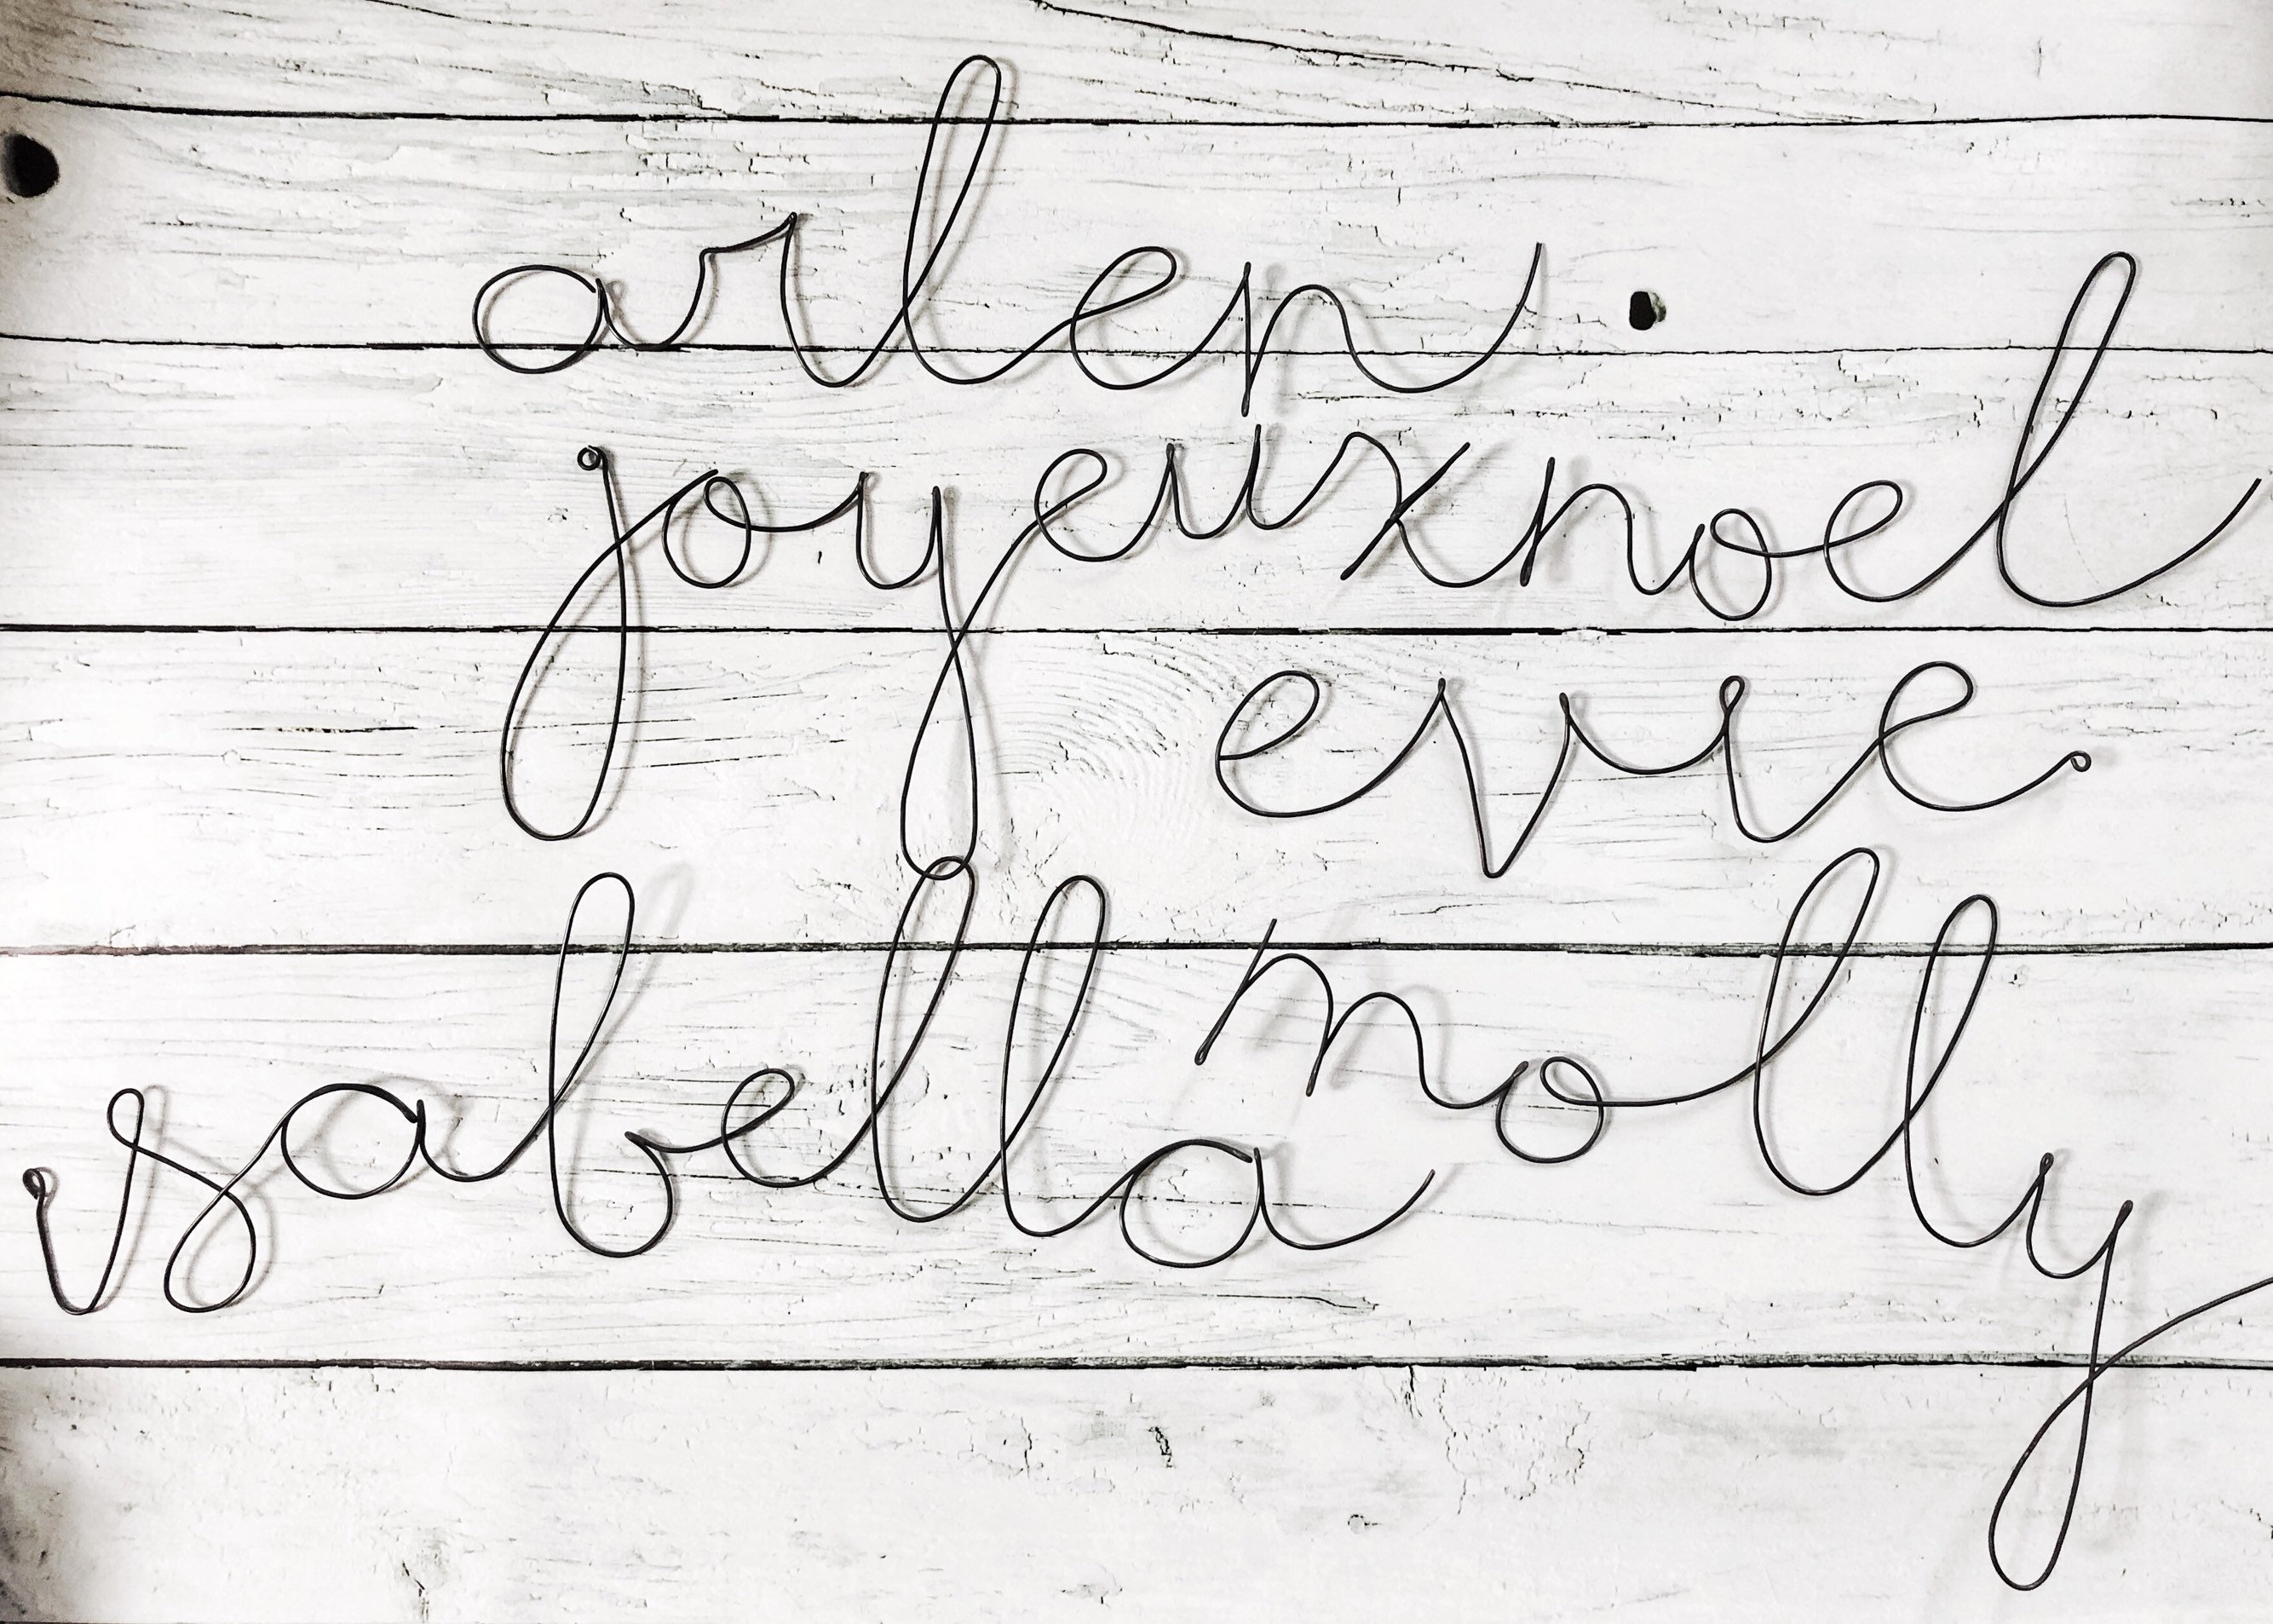 arlen
joyeuxnoel
evie
isabella molly